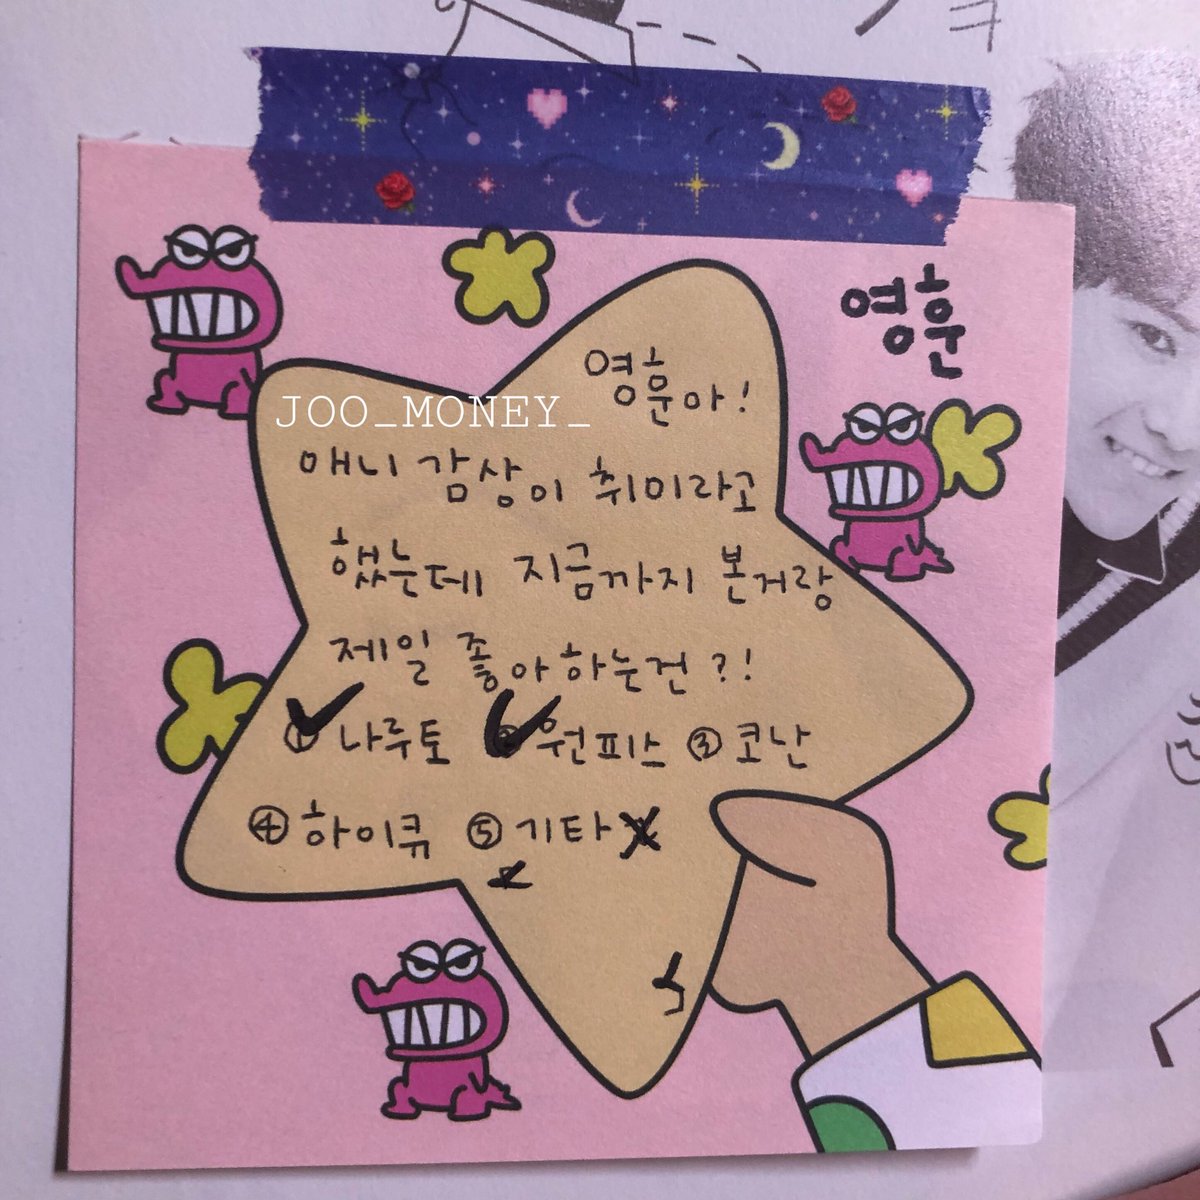 영훈
영훈아!
JOO_MONEY_
애니 감상이 취미라고
했는데 지금까지 본거랑
제일 좋아하는건?!
① 나루토 ② 원피스 ③ 코난
④ 하이큐 ⑤ 기타